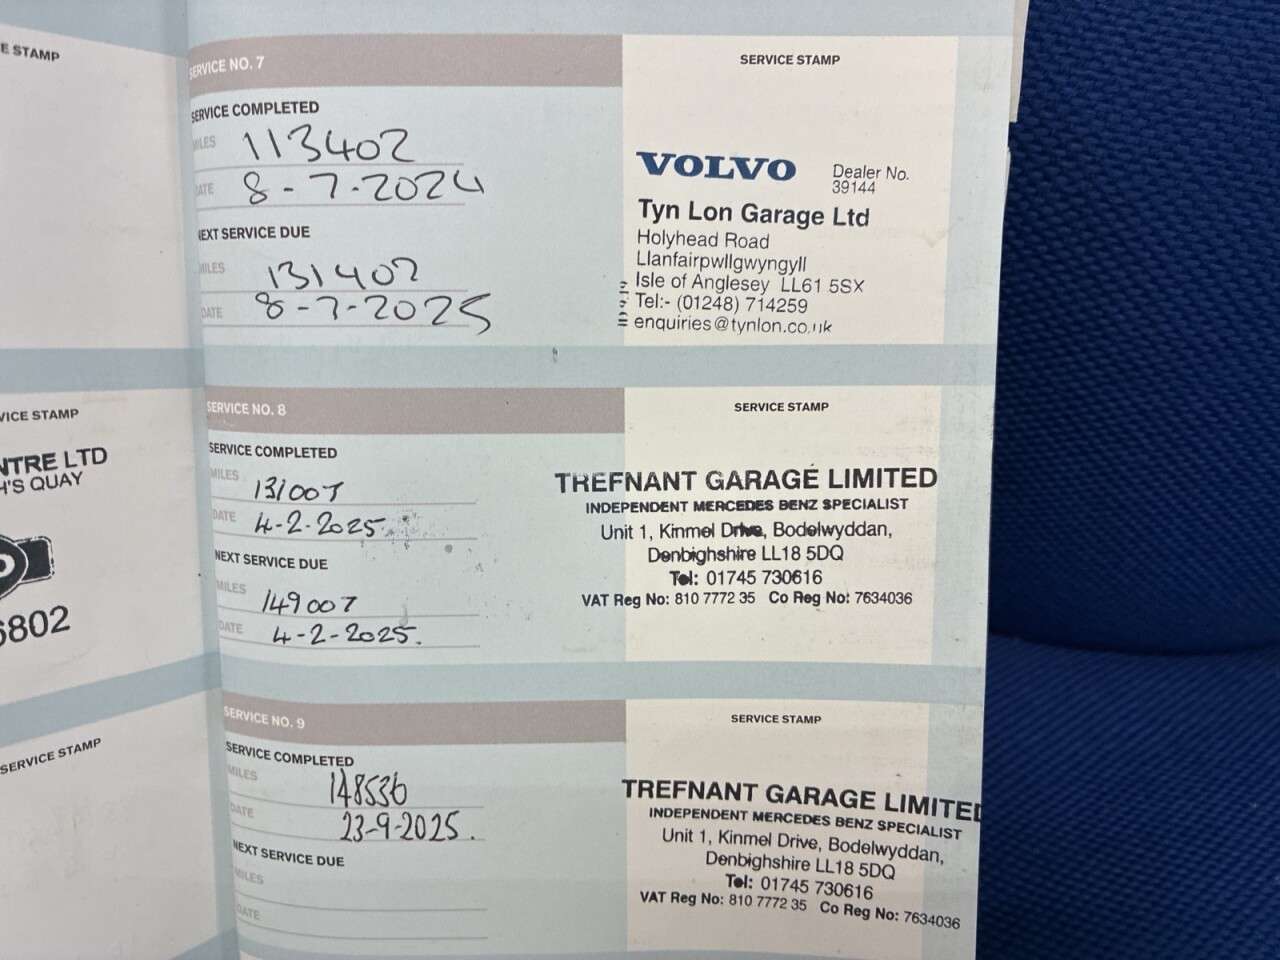 E STAMP
VICE STAMP
NTRE LTD
H'S QUAY
6802
SERVICE STAMP
SERVICE NO. 7
SERVICE COMPLETED
MILES 113402
DATE 8-7-2024
NEXT SERVICE DUE
MILES 131402
DATE 8-7-2025
SERVICE STAMP
VOLVO Dealer No.
39144
Tyn Lon Garage Ltd
Holyhead Road
Llanfairpwllgwyngyll
Isle of Anglesey LL61 5SX
Tel:- (01248) 714259
enquiries@tynlon.co.uk
SERVICE NO. 8
SERVICE COMPLETED
MILES 131007
DATE 4-2-2025
NEXT SERVICE DUE
MILES 149007
DATE 4-2-2025.
SERVICE STAMP
TREFNANT GARAGE LIMITED
INDEPENDENT MERCEDES BENZ SPECIALIST
Unit 1, Kinmel Drive, Bodelwyddan,
Denbighshire LL18 5DQ
Tel: 01745 730616
VAT Reg No: 810 7772 35 Co Reg No: 7634036
SERVICE NO. 9
SERVICE COMPLETED
MILES 148536
DATE 23-9-2025.
NEXT SERVICE DUE
MILES
DATE
SERVICE STAMP
TREFNANT GARAGE LIMITED
INDEPENDENT MERCEDES BENZ SPECIALIST
Unit 1, Kinmel Drive, Bodelwyddan,
Denbighshire LL18 5DQ
Tel: 01745 730616
VAT Reg No: 810 7772 35 Co Reg No: 7634036